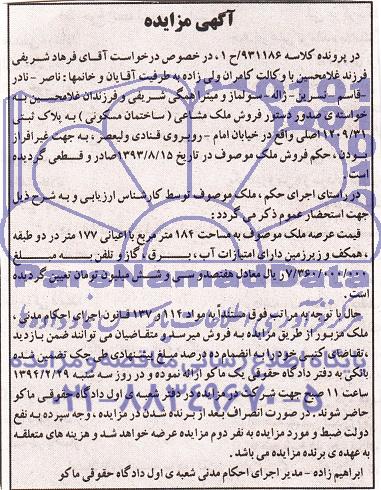 آگهی مزایده
در پرونده کلاسه ۹۳۱۱۸۶/ح ۱، در خصوص درخواست آقای فرهاد شریفی
فرزند غلامحسین با وکالت کامران ولی زاده به طرفیت آقایان و خانمها: ناصر - نادر
- قاسم - جبریل - ژاله - سولماز و میترا همگی شریفی و فرزندان غلامحسین به
خواسته ی صدور دستور فروش ملک مشاعی (ساختمان مسکونی) به پلاک ثبتی
۱۲۰۹/۳۱ اصلی واقع در خیابان امام - روبروی قنادی ولیعصر، به جهت غیر افراز
بودن، حکم فروش ملک موصوف در تاریخ ۱۳۹۳/۸/۱۵ صادر و قطعی گردیده
است.
در راستای اجرای حکم، ملک موصوف توسط کارشناس ارزیابی و به شرح ذیل
جهت استحضار عموم ذکر می گردد:
قیمت عرصه ملک موصوف به مساحت ۱۸۴ متر مربع با اعیانی ۱۷۷ متر در دو طبقه
، همکف و زیرزمین دارای امتیازات آب، برق، گاز و تلفن به مبلغ
۷/۳۶۰/۰۰۰/۰۰۰ ریال معادل هفتصد و سی و شش میلیون تومان تعیین گردیده
است.
حال با توجه به مراتب فوق مستنداً به مواد ۱۱۴ و ۱۳۷ قانون اجرای احکام مدنی،
ملک مزبور از طریق مزایده به فروش میرسد و متقاضیان می توانند ضمن بازدید
، تقاضای کتبی خود را به انضمام ده درصد مبلغ پیشنهادی طی چک تضمین شده
بانکی به دفتر دادگاه حقوقی یک ماکو ارائه نموده و در روز سه شنبه ۱۳۹۴/۲/۲۹
ساعت ۱۱ صبح جهت شرکت در مزایده در دفتر شعبه ی اول دادگاه حقوقی ماکو
حاضر شوند. در صورت انصراف بعد از برنده شدن در مزایده، وجه سپرده به نفع
دولت ضبط و مورد مزایده به نفر دوم مزایده عرضه خواهد شد و هزینه های متعلقه
به عهده ی برنده مزایده می باشد.
ابراهیم زاده - مدیر اجرای احکام مدنی شعبه ی اول دادگاه حقوقی ماکو
ParsNamadData